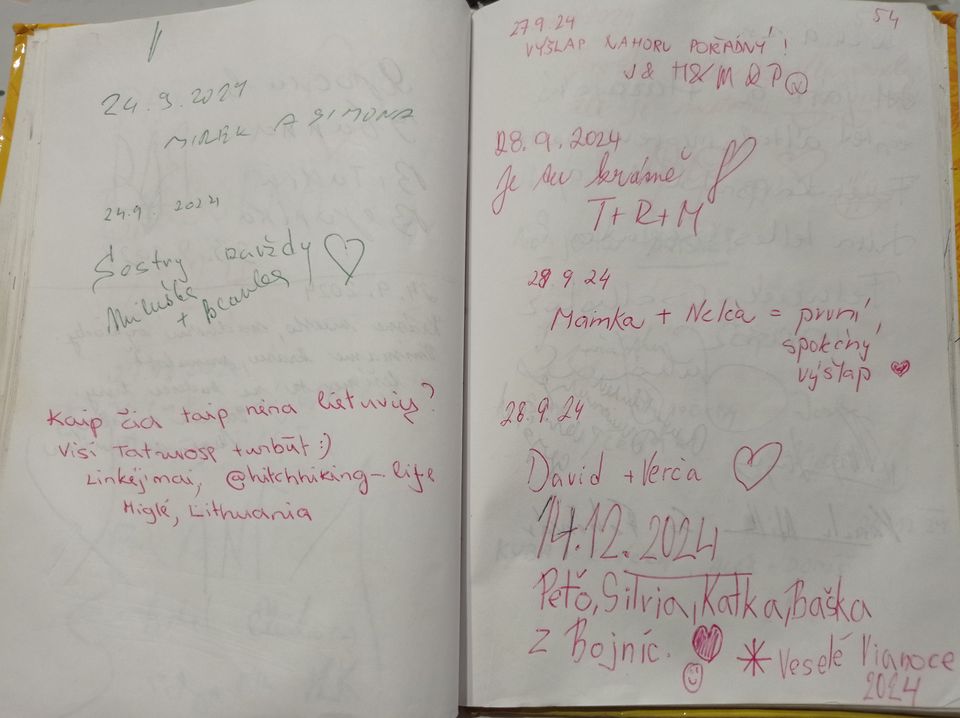 24.9.2024
MIREK A SIMONA
24.9. 2024
Sestry navždy
Miluška
+ Blanka
Kaip čia taip nėra lietuvių?
Visi Tatruose turbūt :)
Linkėjimai, @hitchhiking_life
Miglė, Lithuania
54
27.9.24
VÝŠLAP NAHORU POŘÁDNÝ!
J & H & M & P
28.9.2024
Je tu krásně
T+R+M
28.9.24
Mamka + Nelča = první
společný
výšlap
28.9.24
David + Verča
14.12.2024
Peťo, Silvia, Katka, Baška
z Bojníc.
Veselé Vianoce
2024